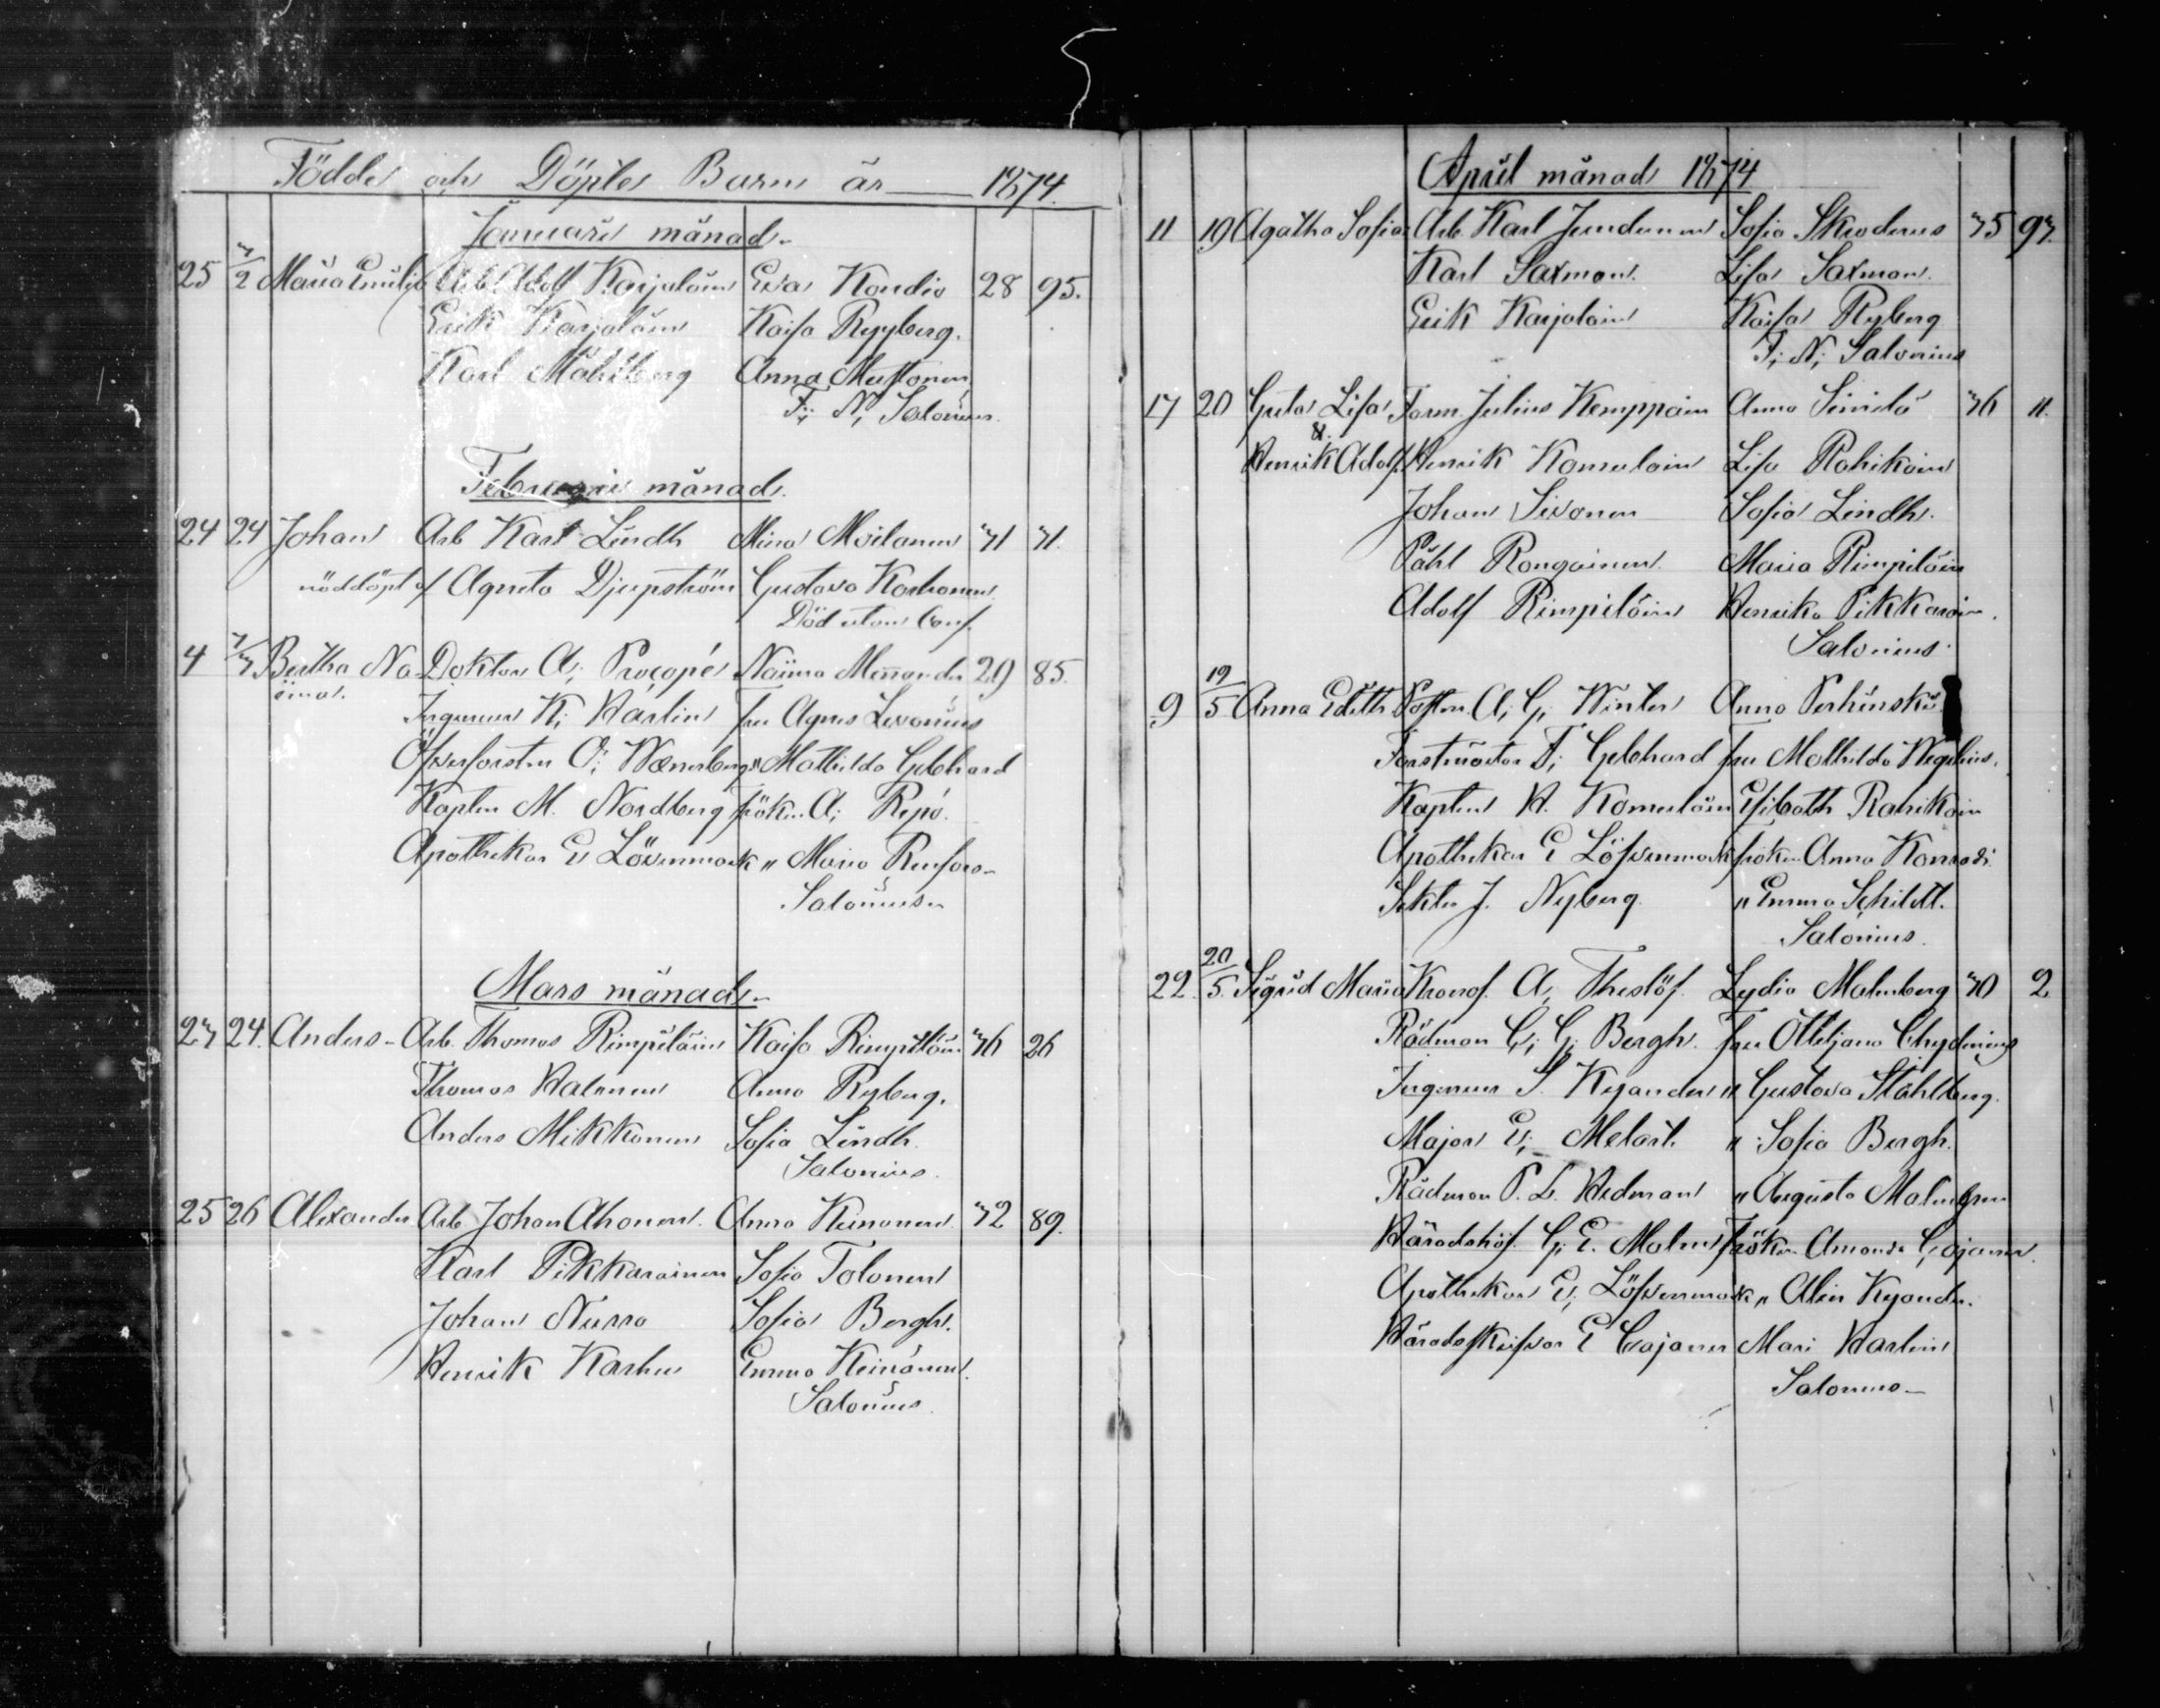 Födde och Döpte Barn år 1874.
Januari månad.
25 7/2 Maria Emilia Arb. Adolf Karjalain Eva Kondio 28 95.
Erik Karjalain Kaisa Ryyberg.
Karl Måhlberg Anna Mustonen
F. N. Salonius.
Februari månad.
24 24 Johan Arb Karl Lindh Mina Moilanen 71 71.
nöddöpt af Agneta Djupström Gustava Korhonen
Död utom Conf.
4 7/7 Bertha Na- Doktor A; Procopé Naima Menander 29 85.
ima. Ingenieur K; Harlin fru Agnes Levonius
Öfverforstm O; Wænerberg " Mathilda Gebhard
Kapten M. Nordberg fröken A; Repo.
Apothekar E; Lövenmark " Maria Renfors
Salonius
Mars månad.
27 24. Anders Arb. Thomas Rimpiläin Kaisa Rimpiläin 76 26
Thomas Halonen Anna Ryberg.
Anders Mikkonen Sofia Lindh
Salonius.
25 26 Alexander Arb. Johan Ahonen. Anna Keinonen 72 89.
Karl Pikkarainen Sofia Tolonen
Johan Nurro Sofia Bergh.
Henrik Karhu Emma Keinänen.
Salonius.
April månad 1874
11 19 Agatha Sofia Arb. Karl Jundunen Sofia Skroderus 75 97.
Karl Saxman. Lisa Saxman.
Erik Karjalain Kaisa Ryberg
F; N; Salonius
17 20 Greta Lisa Farm. Julius Kemppain Anna Sinislö 76 11.
&.
Henrik Adolf. Henrik Komulain Lisa Rahikain
Johan Sivonen Sofia Lindh.
Påhl Rongainen. Maria Rimpiläin
Adolf Rimpiläin Henrika Pikkarain.
Salonius.
9 19/5 Anna Edith Postm. A; G; Winter Anna Perhinskij
Forstmästar F; Gebhard fru Mathilda Wegelius.
Kapten H. Komulain Elisbath Rahikain
Apothekar E Löfvenmark fröken Anna Konradi
Sektr J. Nyberg. " Emma Schildt.
Salonius.
22. 20/5. Sigrid Maria Kronof. A; Theslöf. Lydia Malmberg 70 2
Rådman C; G; Bergh. fru Ottiljana Chydenius
Ingenieur S. Kyander " Gustava Ståhlberg.
Major E; Melart. " Sofia Bergh.
Rådman P. L. Hedman " Augusta Malmgren
Häradshöf. G; E. Malm Fröken Amanda Cajanus.
Apothekar E; Löfvenmark " Alin Kyander.
Häradsskrifvar E Cajanus Mari Harlin
Salonius